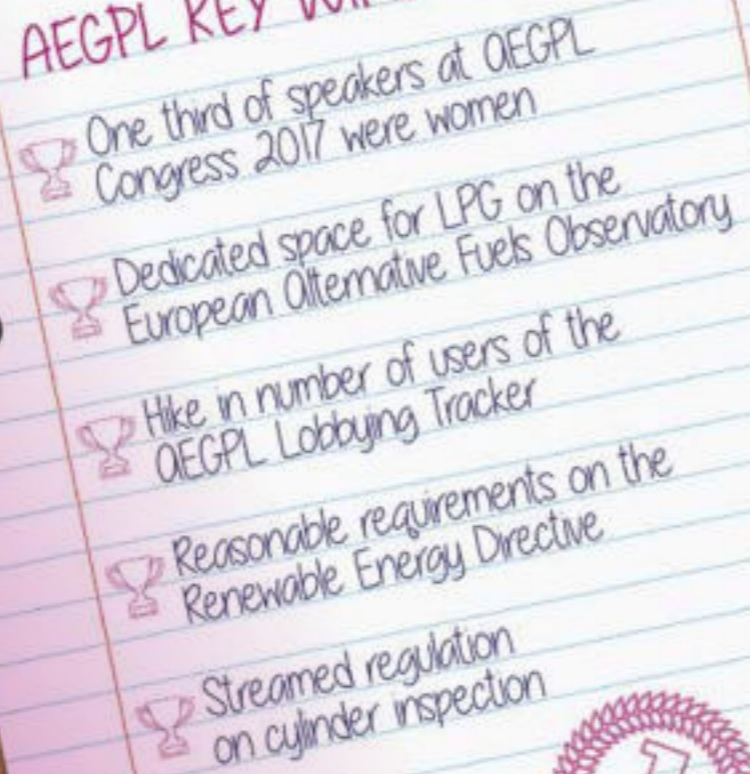 AEGPL KEY
One third of speakers at AEGPL
Congress 2017 were women
Dedicated space for LPG on the
European Alternative Fuels Observatory
Hike in number of users of the
AEGPL Lobbying Tracker
Reasonable requirements on the
Renewable Energy Directive
Streamed regulation
on cylinder inspection
1